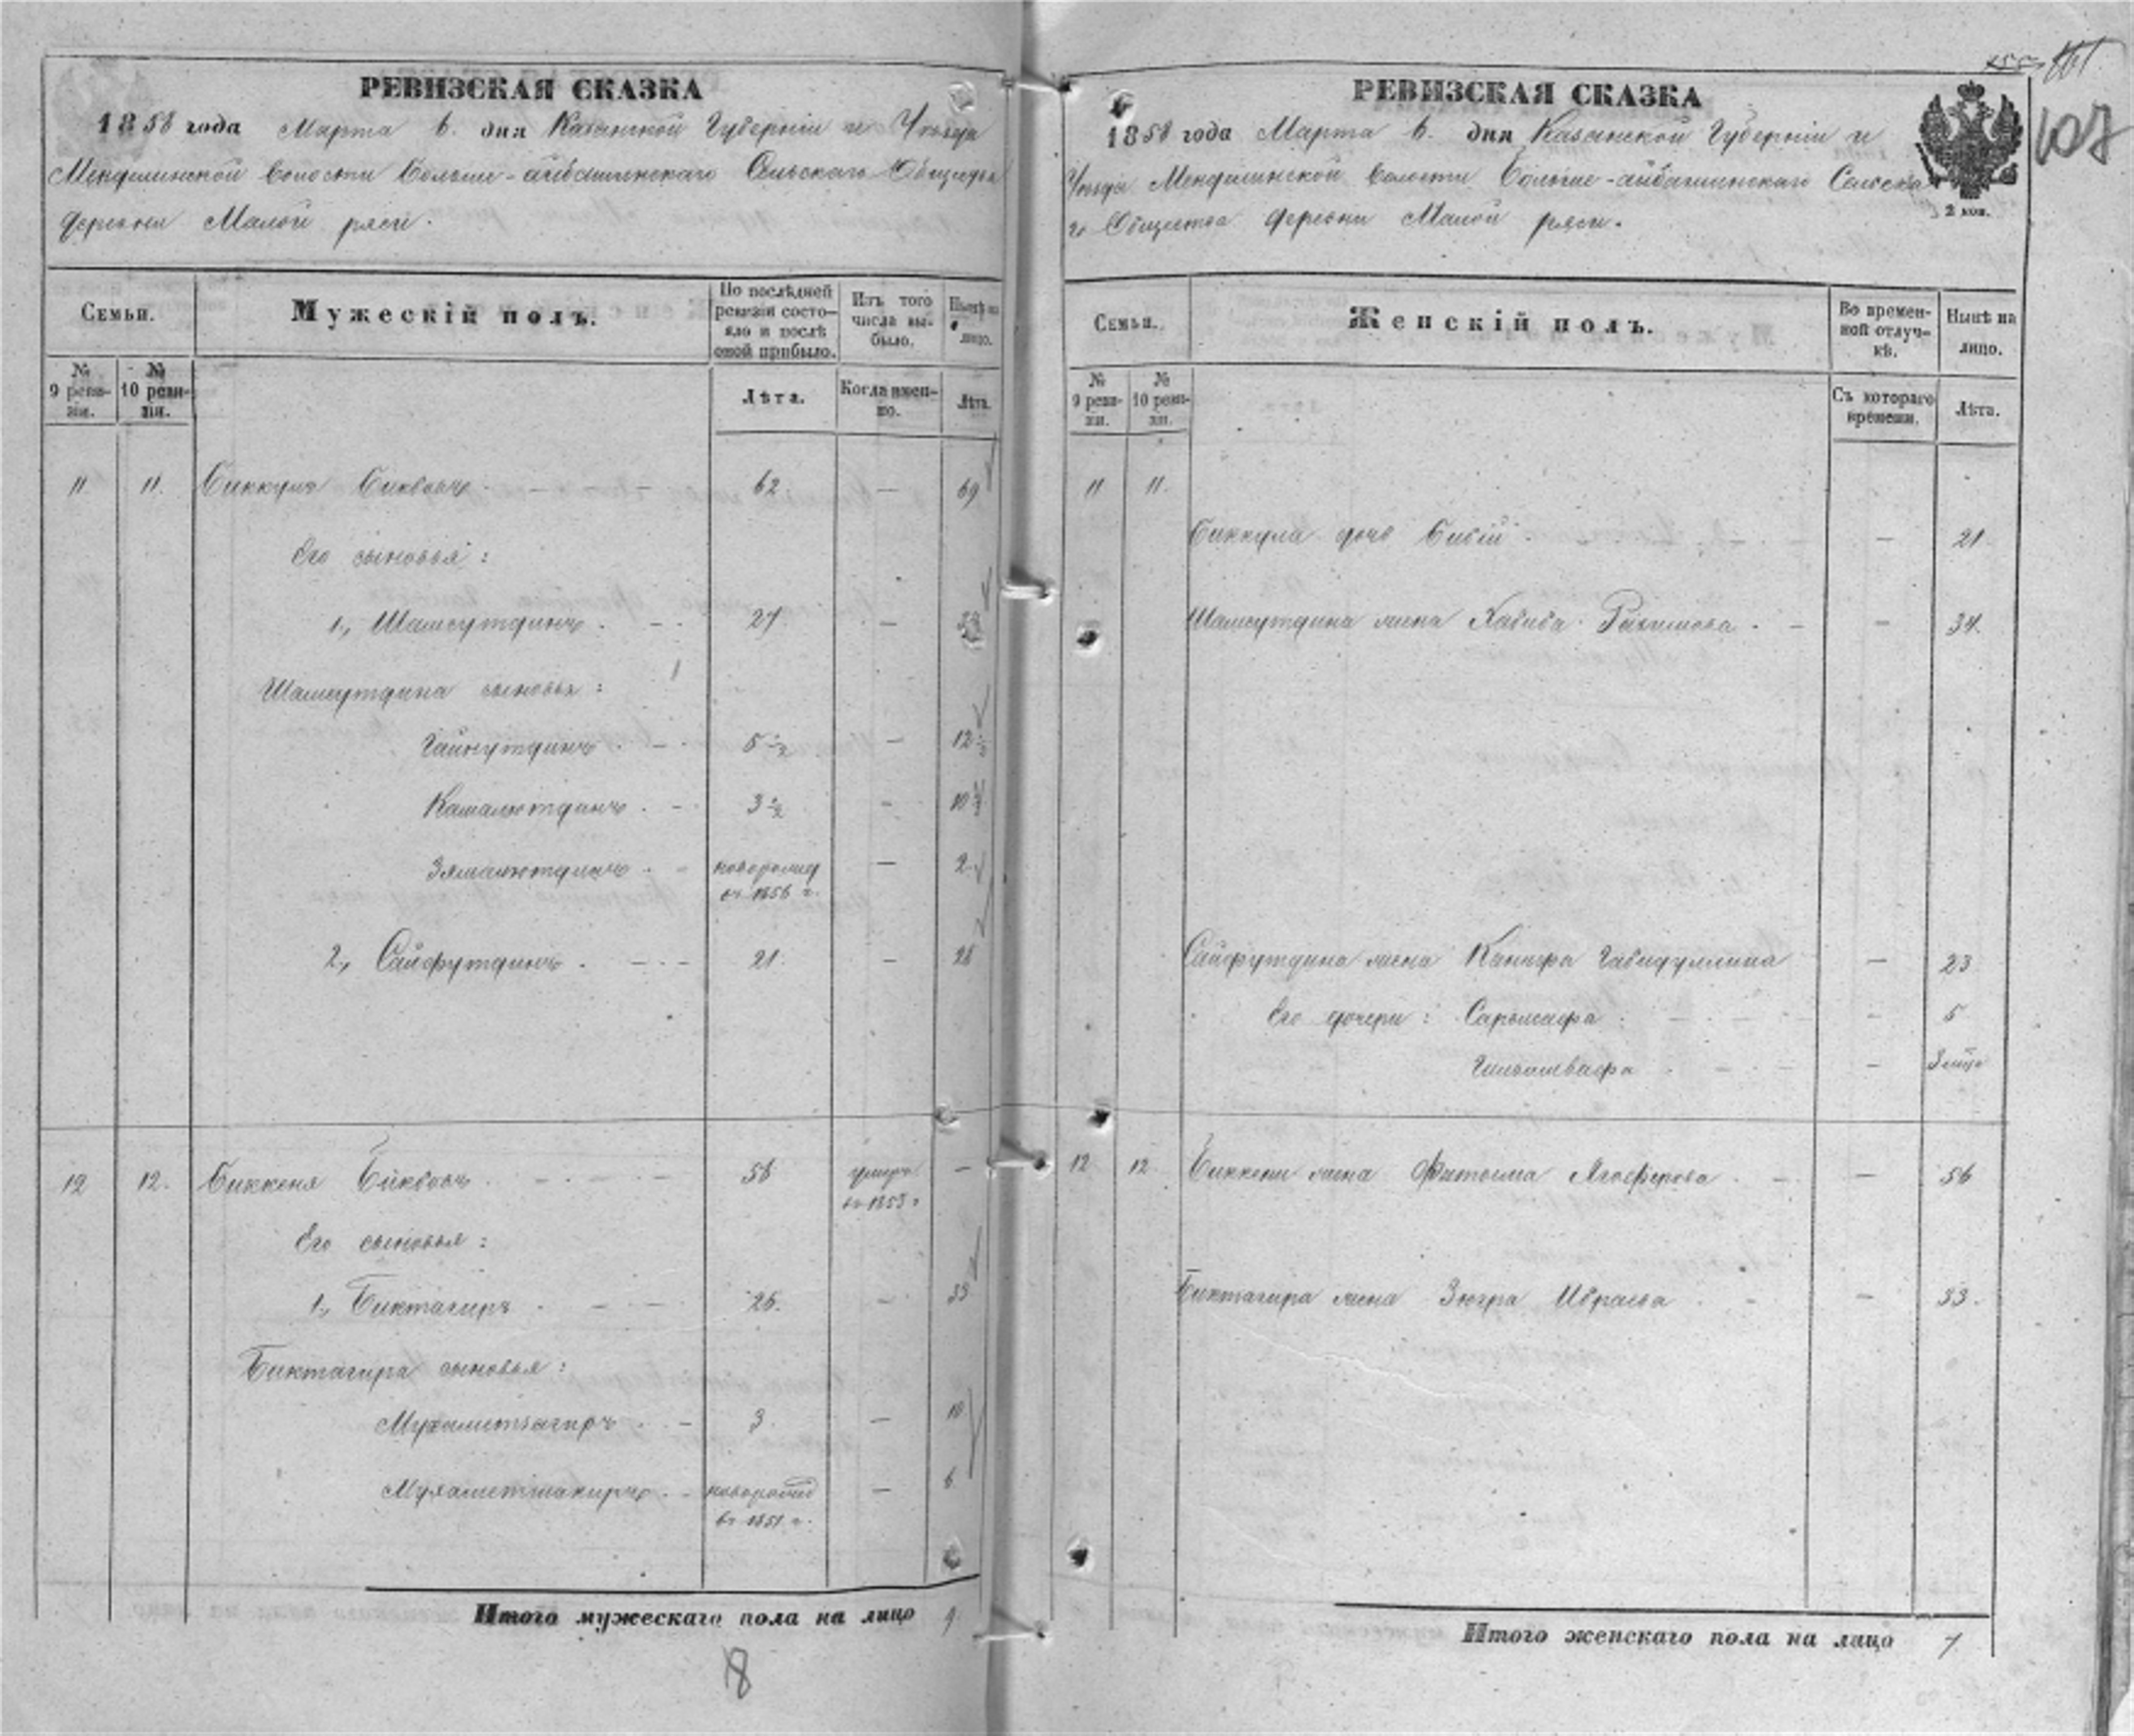 РЕВИЗСКАЯ СКАЗКА
1858 года Марта 6. дня Казанской Губерніи и Уѣзда
Менделинской волости Больше-айбашинскаго Сельскаго Общества
деревни Малой ряси.
Семьи.
Мужескій полъ.
По послѣдней ревизіи состояло и послѣ оной прибыло.
Изъ того числа выбыло.
Нынѣ на лицо.
№ 9 ревизіи.
№ 10 ревизіи.
Лѣта.
Когда именно.
Лѣта.
11 11. Биккулъ Бикбовъ 62 — 69
Его сыновья:
1., Шамсутдинъ 27 —
Шамсутдина сыновья:
Гайнутдинъ 5 1/2 — 12 1/2
Камалютдинъ 3 1/2 — 10 1/2
Зямалютдинъ новорожд — 2
въ 1856 г.
2., Сайфутдинъ 21 — 28
12 12. Биккеня Бикбовъ 58 умеръ —
въ 1853 г
Его сыновья:
1., Биктагиръ 26. — 33
Биктагира сыновья:
Мухаметзагиръ 3. — 10
Мухаметшакиръ новорожд — 6
въ 1851 г.
Итого мужескаго пола на лицо 9
18
107
РЕВИЗСКАЯ СКАЗКА
1858 года Марта 6. дня Казанской Губерніи и
Уѣзда Менделинской волости Больше-айбашинскаго Сельска
го Общества деревни Малой ряси.
2 коп.
Семьи.
Женскій полъ.
Во временной отлучкѣ.
Нынѣ на лицо.
№ 9 ревизіи.
№ 10 ревизіи.
Съ котораго времени.
Лѣта.
11 11.
Биккула дочь Бибій — 21
Шамсутдина жена Хабиба Рахимова — 34.
Сайфутдина жена Канифа Габидуллина — 23
Его дочери: Сарьжафа — 5
—
12 12. Биккени жена Фатьима Ягоферова — 56
Биктагира жена Зюгра Ибраева — 33.
Итого женскаго пола на лицо 7